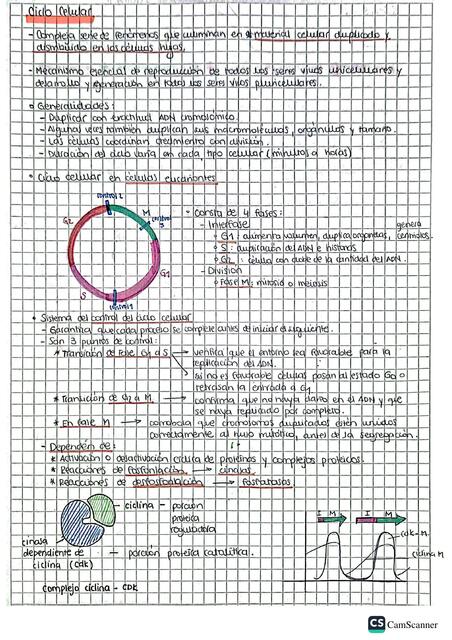 Ciclo Celular
- Compleja serie de fenómenos que culminan en el material celular duplicado y
distribuido en las células hijas.
- Mecanismo esencial de reproducción de todos los seres vivos unicelulares y
desarrollo y regeneración en todos los seres vivos pluricelulares.
Generalidades:
- Duplicar con exactitud ADN cromosómico.
- Algunas veces también duplican sus macromoléculas, orgánulos y tamaño.
- Las células coordinan crecimiento con división.
- Duración del ciclo varía en cada tipo celular (minutos a horas)
• Ciclo celular en células eucariontes
control 2
G2
M
control 3
G1
S
control 1
• Consta de 4 fases:
- Interfase
G1: aumenta volumen, duplica organelos, genera centriolos.
S: duplicación del ADN e histonas
G2: célula con doble de la cantidad del ADN.
- División
Fase M: mitosis o meiosis
• Sistema del control del ciclo celular
- Garantiza que cada proceso se complete antes de iniciar el siguiente.
- Son 3 puntos de control:
* Transición de Fase G1 a S → verifica que el entorno sea favorable para la
replicación del ADN.
si no es favorable células pasan al estado G0 o
retrasan la entrada a G1
* Transición de G2 a M → confirma que no haya daño en el ADN y que
se haya replicado por completo.
* En fase M → comprueba que cromosomas duplicados estén unidos
correctamente al huso mitótico, antes de la segregación.
- Dependen de:
* Activación o desactivación cíclica de proteínas y complejos proteicos.
* Reacciones de fosforilación → cinasas
* Reacciones de desfosforilación → fosfatasas
ciclina - porción
proteica
reguladora
cinasa
dependiente de
ciclina (CdK)
- porción proteica catalítica.
complejo ciclina - CDK
I M I M
cdk-M
ciclina M
CS CamScanner